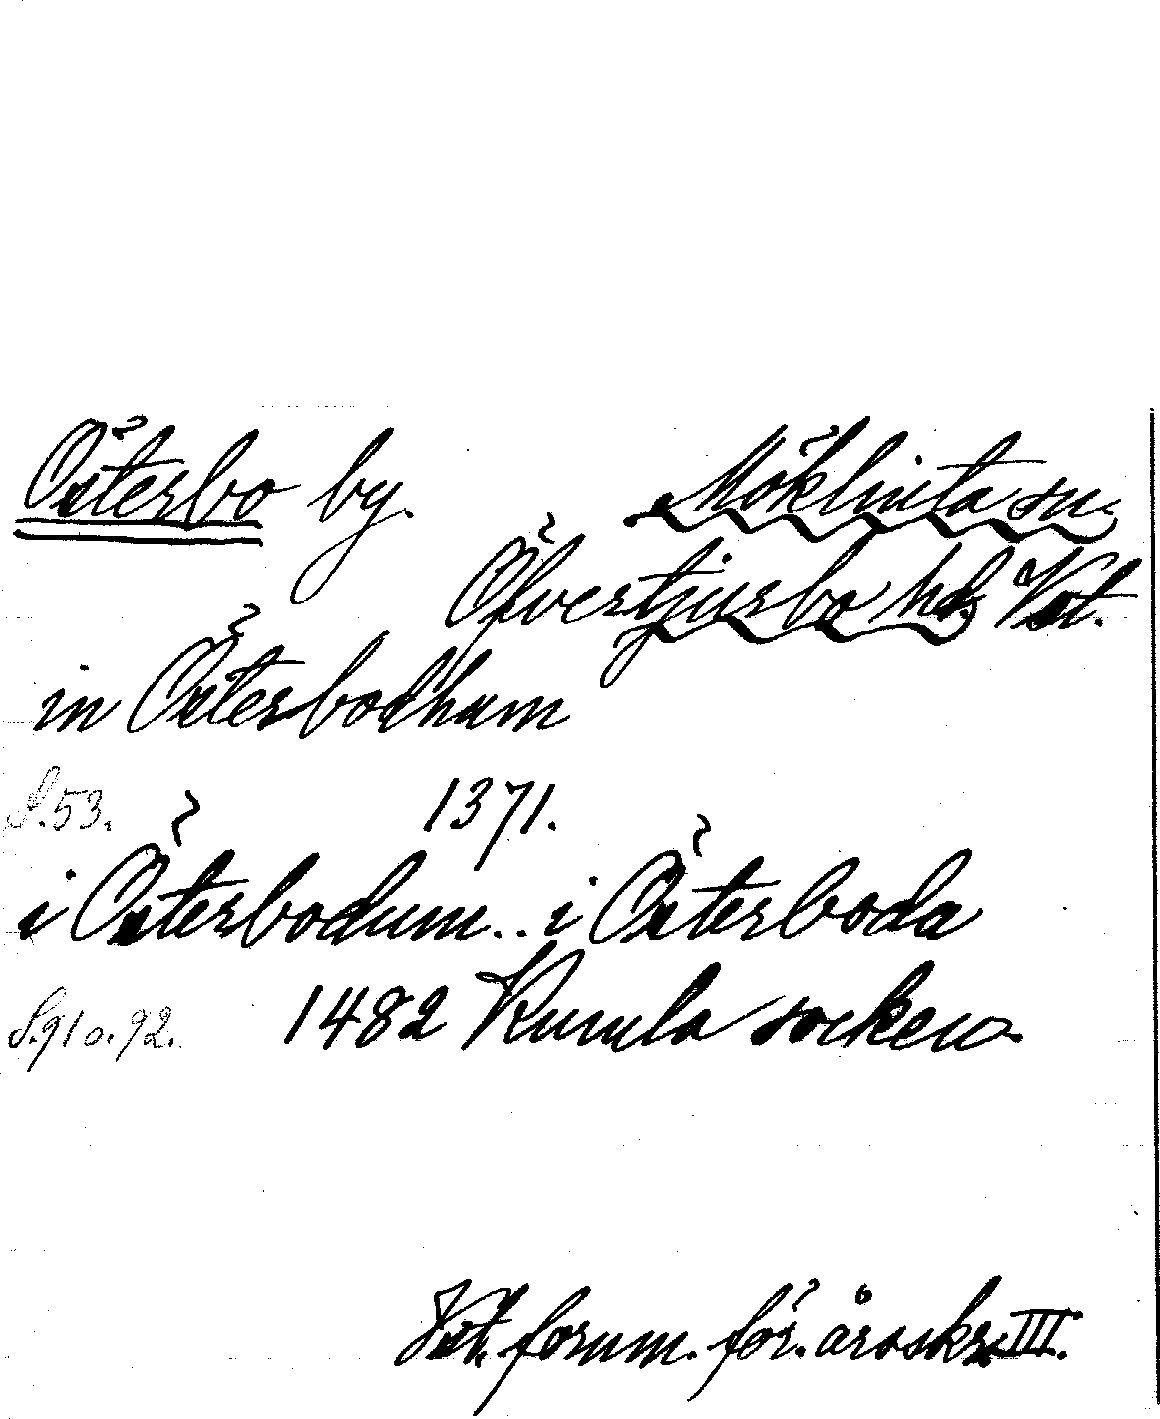 Österbo by. Möklinta sn.
Öfvertjurbo hd, Vst.
in Österbodhum
S. 53. 1371.
i Österbodum... i Österboda
S. 91 o. 92. 1482 Kumla socken
Vst. fornm. för. årsskr. III.